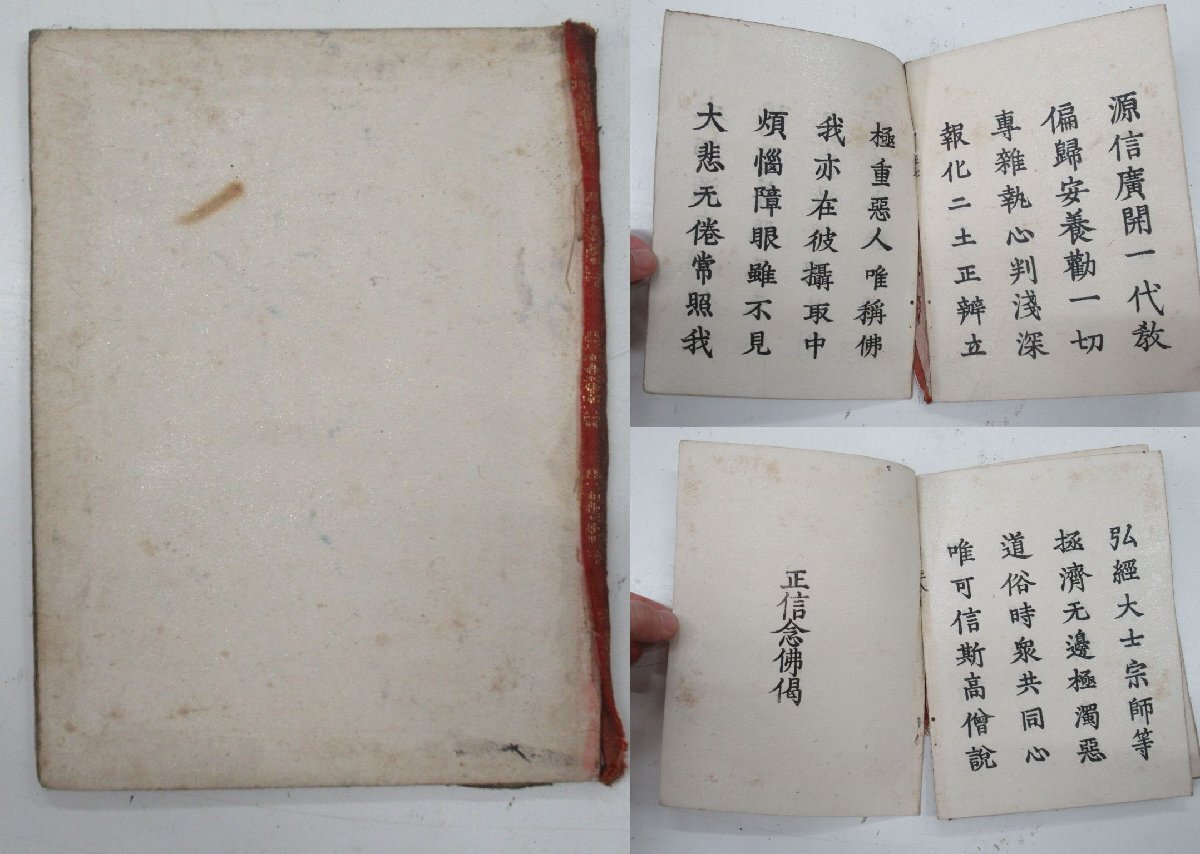 源信廣開一代教
偏歸安養勸一切
專雜執心判淺深
報化二土正辨立
極重惡人唯稱佛
我亦在彼攝取中
煩惱障眼雖不見
大悲无倦常照我
弘經大士宗師等
拯濟无邊極濁惡
道俗時衆共同心
唯可信斯高僧說
正信念佛偈